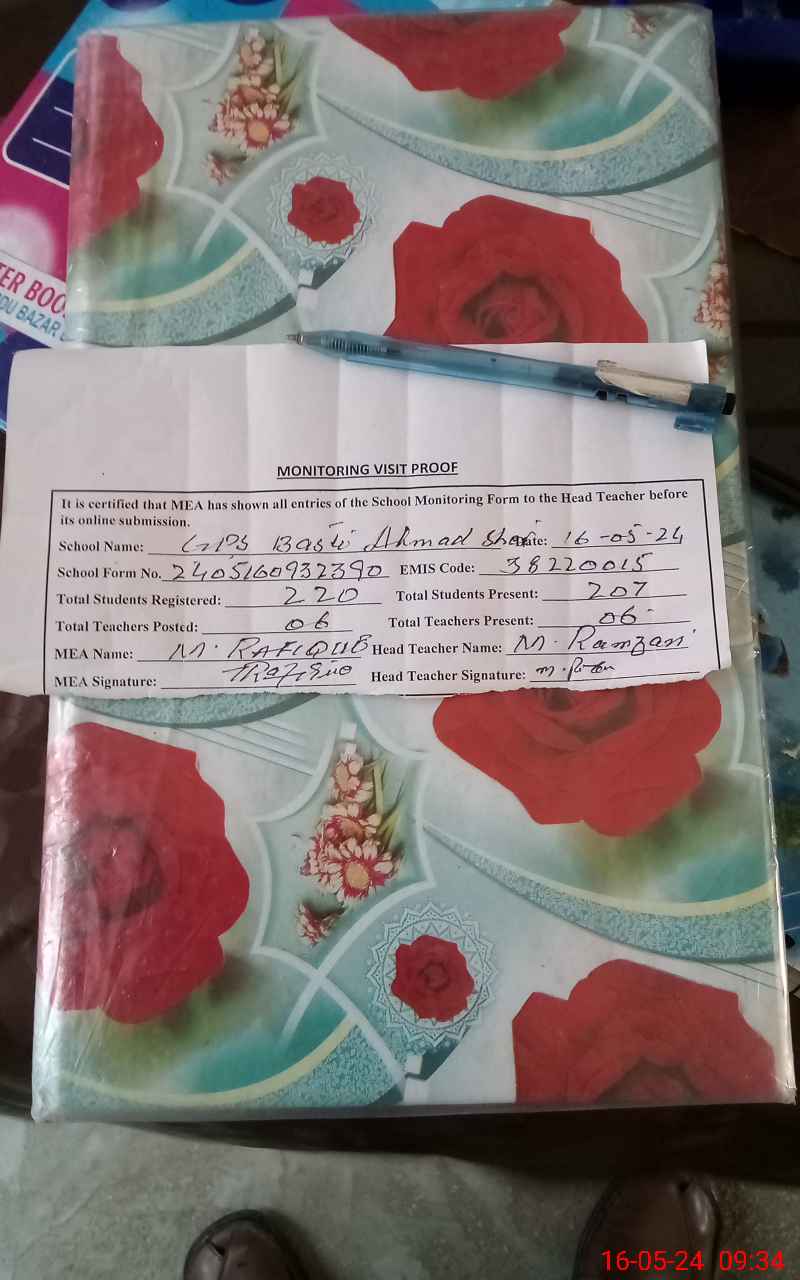 TER BOO
DU BAZAR
MONITORING VISIT PROOF
It is certified that MEA has shown all entries of the School Monitoring Form to the Head Teacher before
its online submission.
School Name: GPS Basti Ahmad Date: 16-05-24
School Form No. 2405160932390 EMIS Code: 38220015
Total Students Registered: 220 Total Students Present: 207
Total Teachers Posted: 06 Total Teachers Present: 06
MEA Name: M. RAFIQUE Head Teacher Name: M. Ramzan
MEA Signature: Head Teacher Signature:
16-05-24 09:34